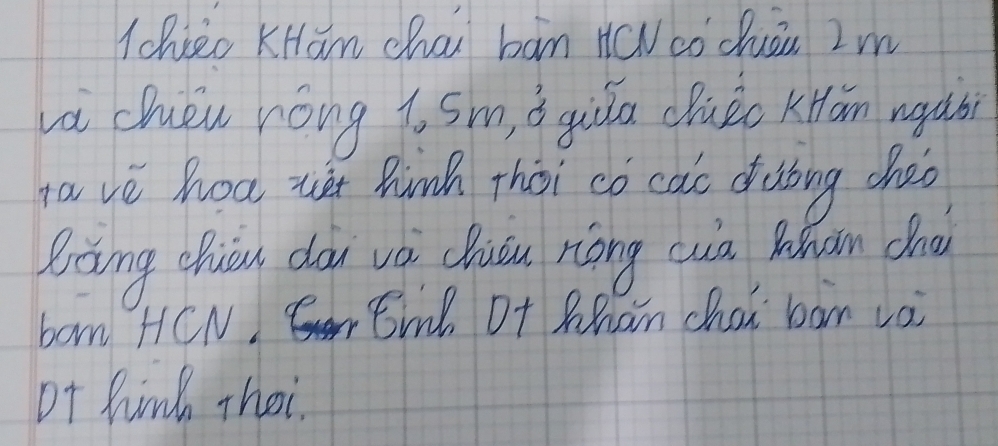 1 chiếc KHăn chải bàn HCN có chiều 2m
và chiều rộng 1,5m, ở giữa chiếc KHăn người
ta vẽ hoạ tiết hình thoi có các đường chéo
bằng chiều dài và chiều rộng của khăn chải
bàn HCN. Tính DT khăn chải bàn và
DT hình thoi.